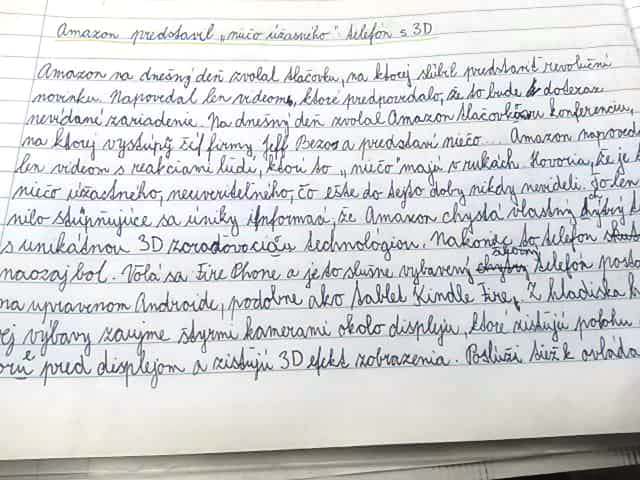 Amazon predstavil „niečo úžasného": telefón s 3D
Amazon na dnešný deň zvolal tlačovku, na ktorej sľúbil predstaviť revolučnú
novinku. Napovedal len videom, ktoré predpovedalo, že to bude doteraz
nevídané zariadenie. Na dnešný deň zvolal Amazon tlačovú konferenciu,
na ktorej vystúpi šéf firmy, Jeff Bezos a predstaví niečo... Amazon napoved
len videom s reakciami ľudí, ktorí to „niečo" majú v rukách. Hovoria, že je t
niečo úžastného, neuveriteľného, čo ešte do tejto doby nikdy nevideli. To len
nilo stupňujúce sa úniky informácií, že Amazon chystá vlastný
s unikátnou 3D zobrazovacou technológiou. Nakoniec to telefón
naozaj bol. Volá sa Fire Phone a je to slušne vybavený telefón posta
na upravenom Androide, podobne ako tablet Kindle Fire. Z hľadiska h
ej výbavy zaujme štyrmi kamerami okolo displeju, ktoré zisťujú polohu
pred displejom a zisťujú 3D efekt zobrazenia. Poslúži tiež k ovláda